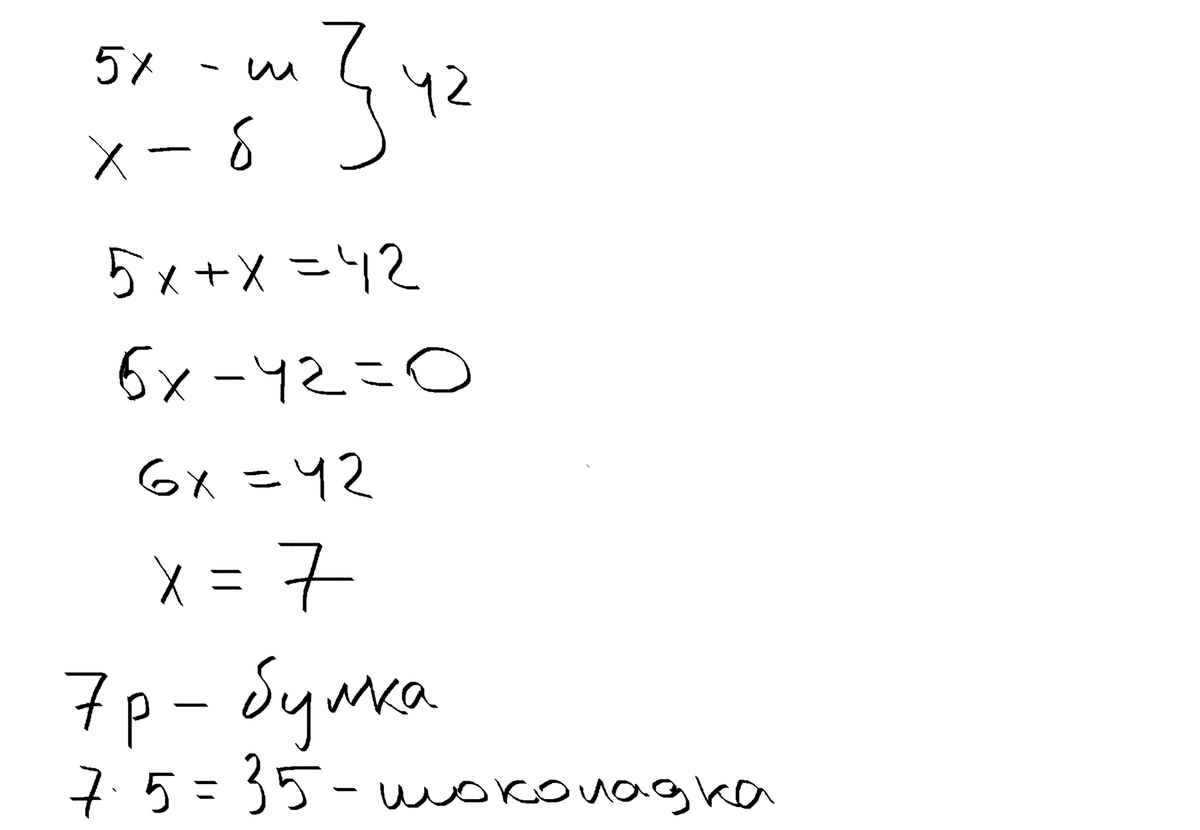 5x - ш } 42
x - б
5x + x = 42
6x - 42 = 0
6x = 42
x = 7
7р - булка
7 · 5 = 35 - шоколадка